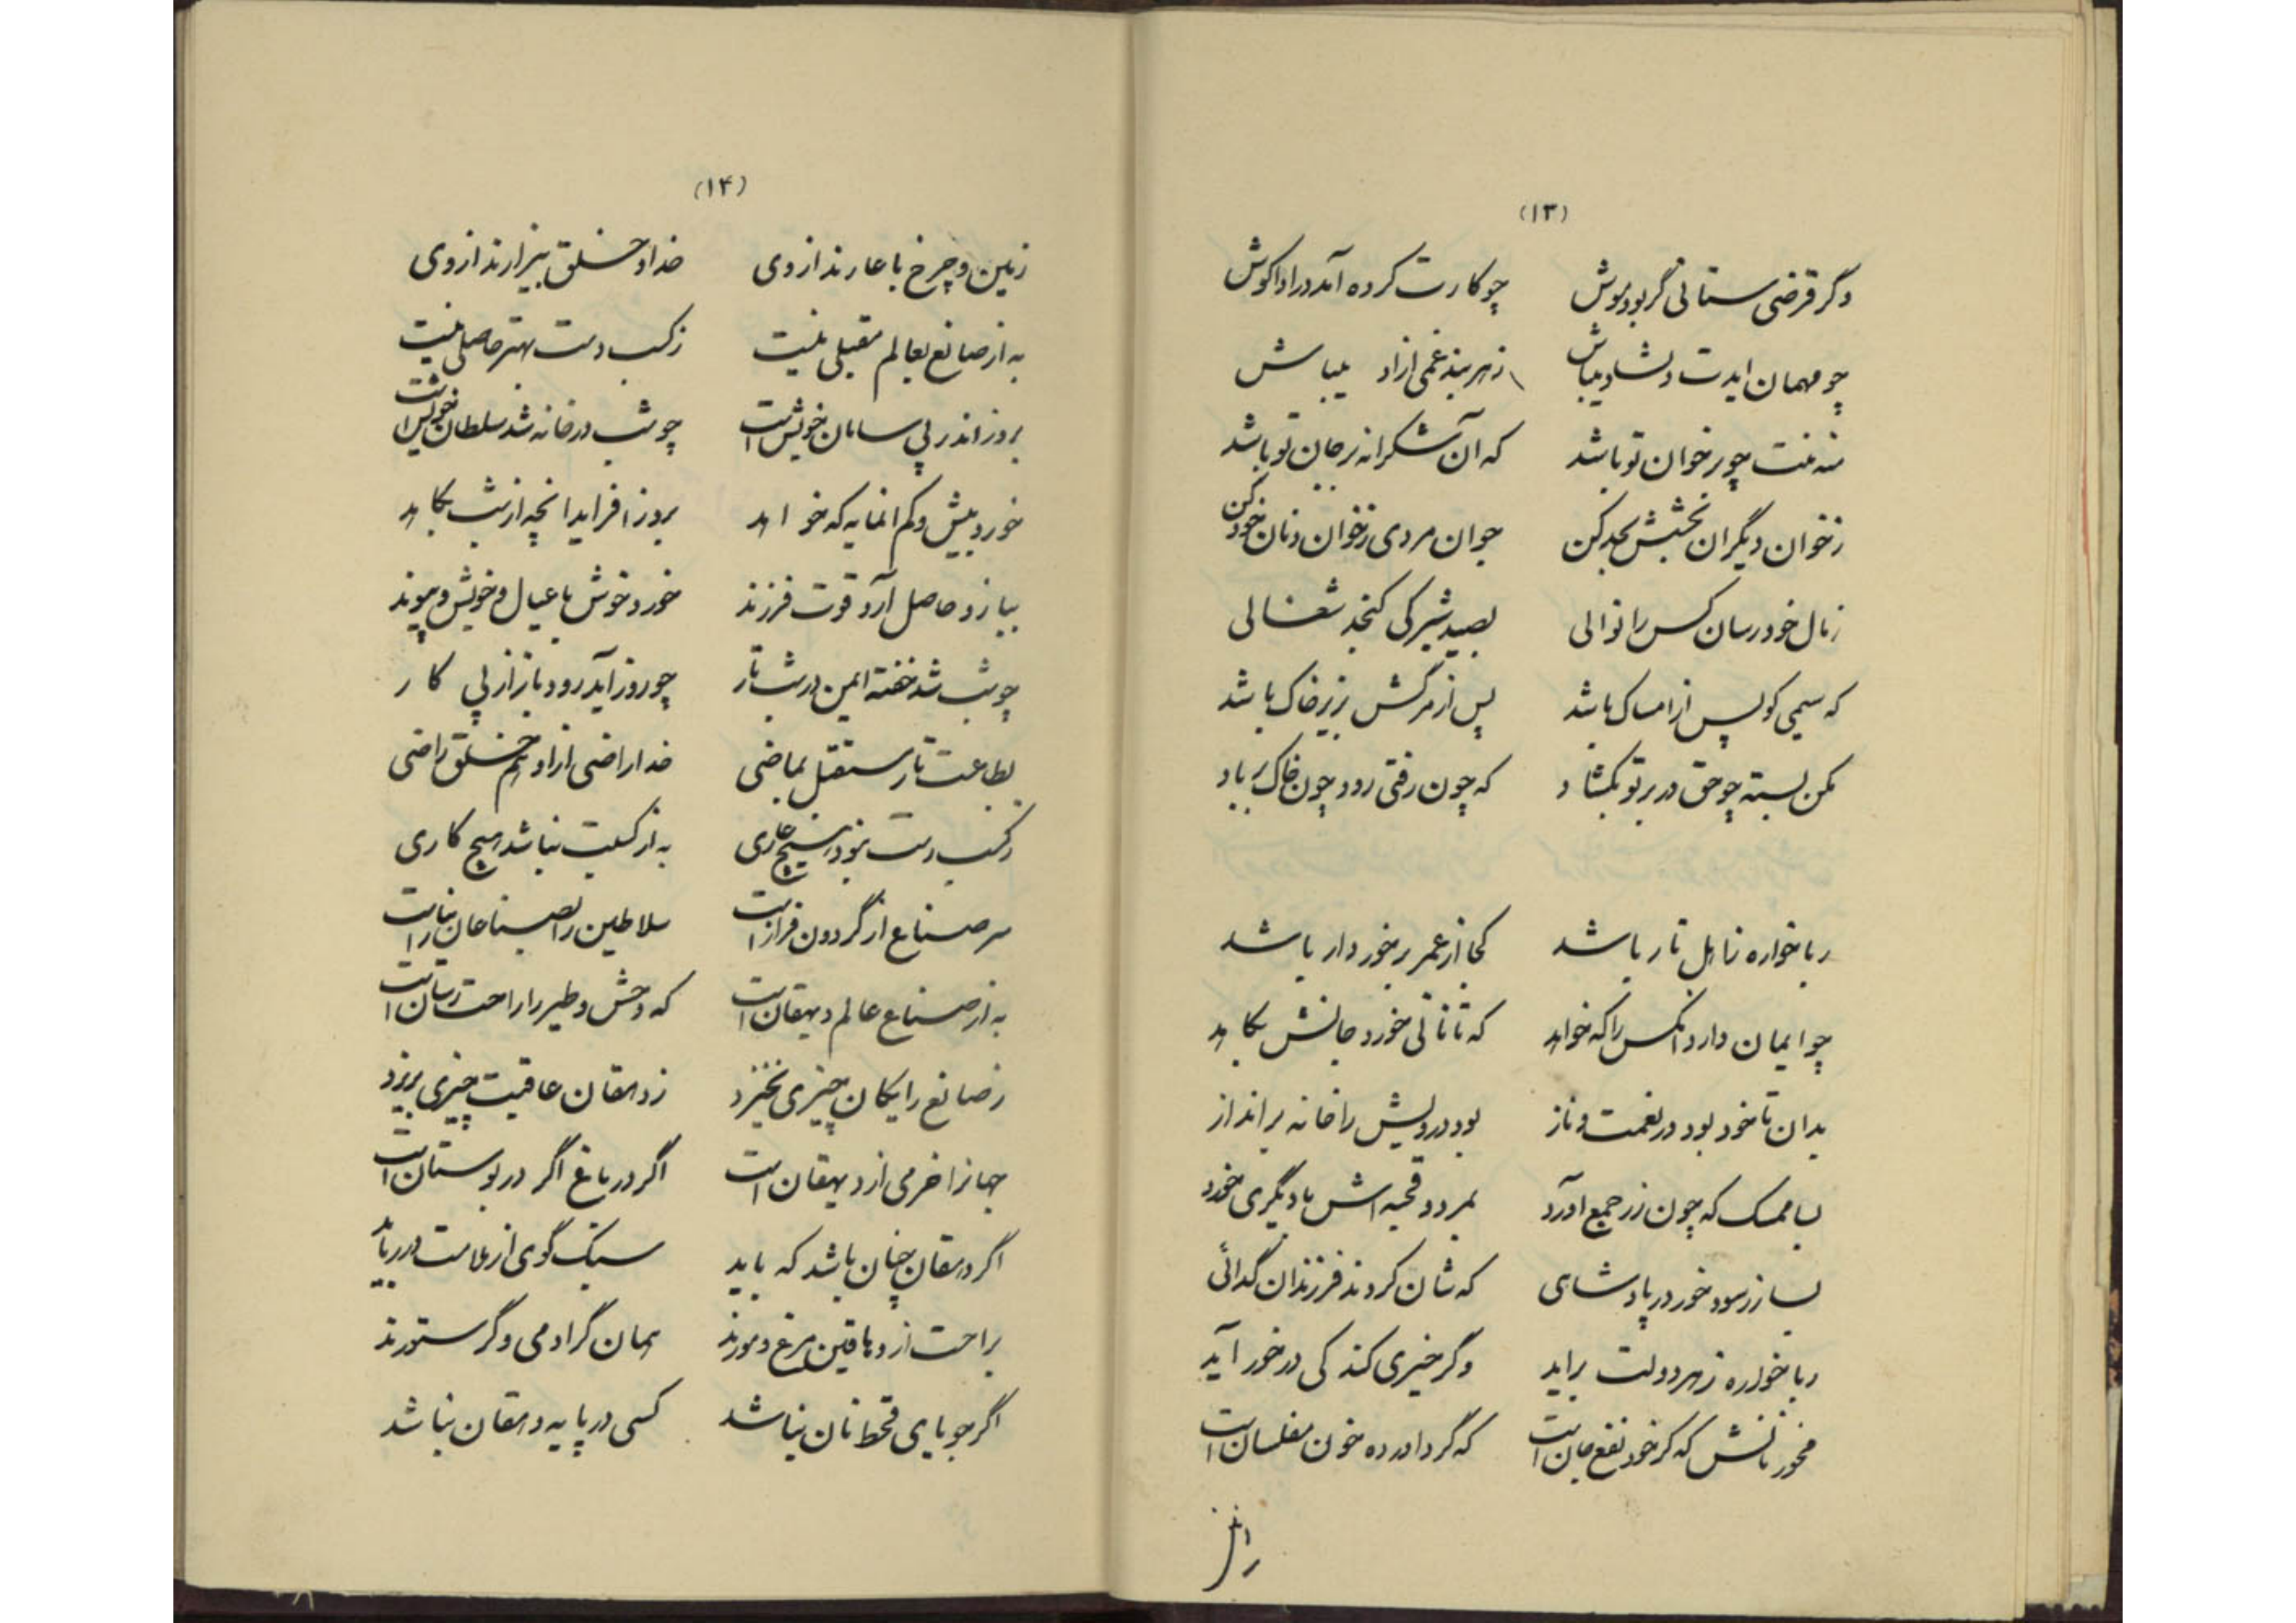 (۱۳)
وگر قرضی ستانی گر بود موش چو کارت کرده آمد در ادا کوش
چو مهمان ایدت دلشاد میباش زهر بند غمی ازاد میباش
منه منت چو بر خوان تو باشد که آن شکرانه بر جان تو باشد
زخوان دیگران بخشش بحد کن جوان مردی زخوان و نان خود کن
زمال خود رسان کس را نوالی بصید شیر کی گنجد شغالی
که سیمی کو پس از امساک باشد پس از مرگش بزیر خاک باشد
مکن بسته چو حق در بر تو بگشاد که چون رفتی رود چون خاک بر باد
ربا خواره ز اهل نار باشد کجا از عمر برخوردار باشد
چو ایمان دارد انکس را که خواهد که تا نانی خورد جانش بکاهد
بدان تا خود بود در نعمت و ناز بود درویش را خانه برانداز
بسا ممسک که چون زر جمع اورد بمرد و قحبه اش با دیگری خورد
بسا زر سود خور در پادشاهی که شان کردند فرزندان گدائی
ربا خواره زهر دولت براید وگر خیری کند کی در خور آید
مخور نانش که گر خود نفع جان است که گرد اورده خون مفلسان است
(۱۴)
زمین و چرخ با عارند از وی خدا و خلق بیزارند از وی
به از صانع بعالم مقبلی نیست ز کسب دست بهتر حاصلی نیست
بروز اندر پی سامان خویش است چو شب در خانه شد سلطان خویش است
خورد بیش و کم انمایه که خواهد بروز افزاید انچه از شب بکاهد
ببازو حاصل آرد قوت فرزند خورد خوش با عیال و خویش و پیوند
چو شب شد خفته ایمن در شب تار چو روز آید رود باز از پی کار
بطاعت تا ز مستقبل بماضی خدا راضی ازاو هم خلق راضی
ز کسب دست نبود هیچ عاری به از کسبت نباشد هیچ کاری
سر صناع از گردون فراز است سلاطین را بصناعان نیاز است
به از صناع عالم دهقان است که وحش و طیر را راحت رسان است
ز صانع رایگان چیزی نخیزد ز دهقان عاقبت چیزی بریزد
جهانرا خرمی از دهقان است اگر در باغ اگر در بوستان است
اگر دهقان چنان باشد که باید سبک گوی از ملامت در رباید
براحت از دهاقین مرغ و مورند همان گر ادمی و گر ستورند
اگر جویای قحط نان نباشد کسی در پایه دهقان نباشد